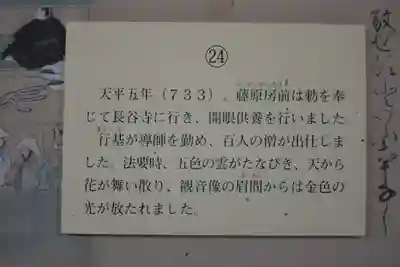 ㉔
天平五年（７３３）、藤原房前は勅を奉
じて長谷寺に行き、開眼供養を行いました
行基が導師を勤め、百人の僧が出仕しま
した。法要時、五色の雲がたなびき、天から
花が舞い散り、観音像の眉間からは金色の
光が放たれました。